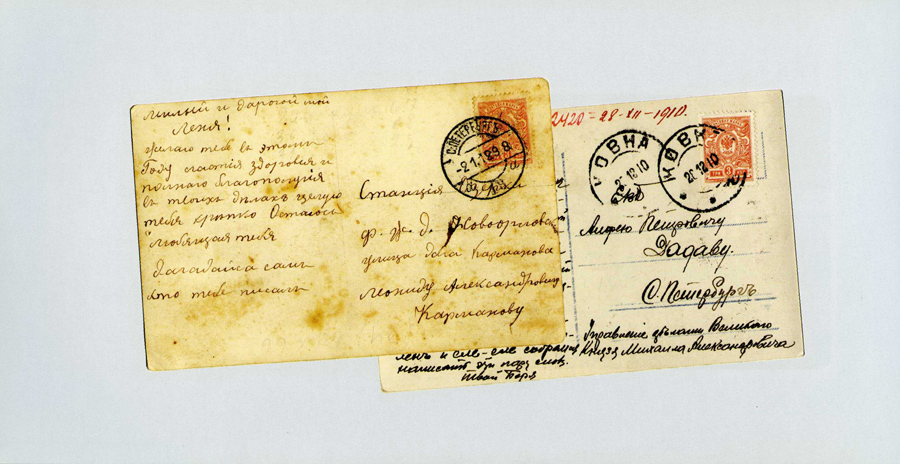 Милый и дарогой мой
Леня!
Желаю тебе въ этомъ
Году счастія здоровья и
полнаго благополучія
въ твоихъ делахъ целую
тебя крепко Остаюсь
любящая тебя
Дагадайса самъ
кто тебе писалъ
С.ПЕТЕРБУРГЪ
-2.1.
Станція
ф. ж. д.
улица дом Карманова
Леониду Александровичу
Карманову
2420 = 28-XII-1910.
КОВНА
12 10
КОВНА
20 12 10
3
Андрею Петровичу
Задаву.
С. Петербургъ
Управленіе дѣлами Великаго
Князя Михаила Александровича
и еле-еле собрался
написать эти пару словъ.
Твой Боря